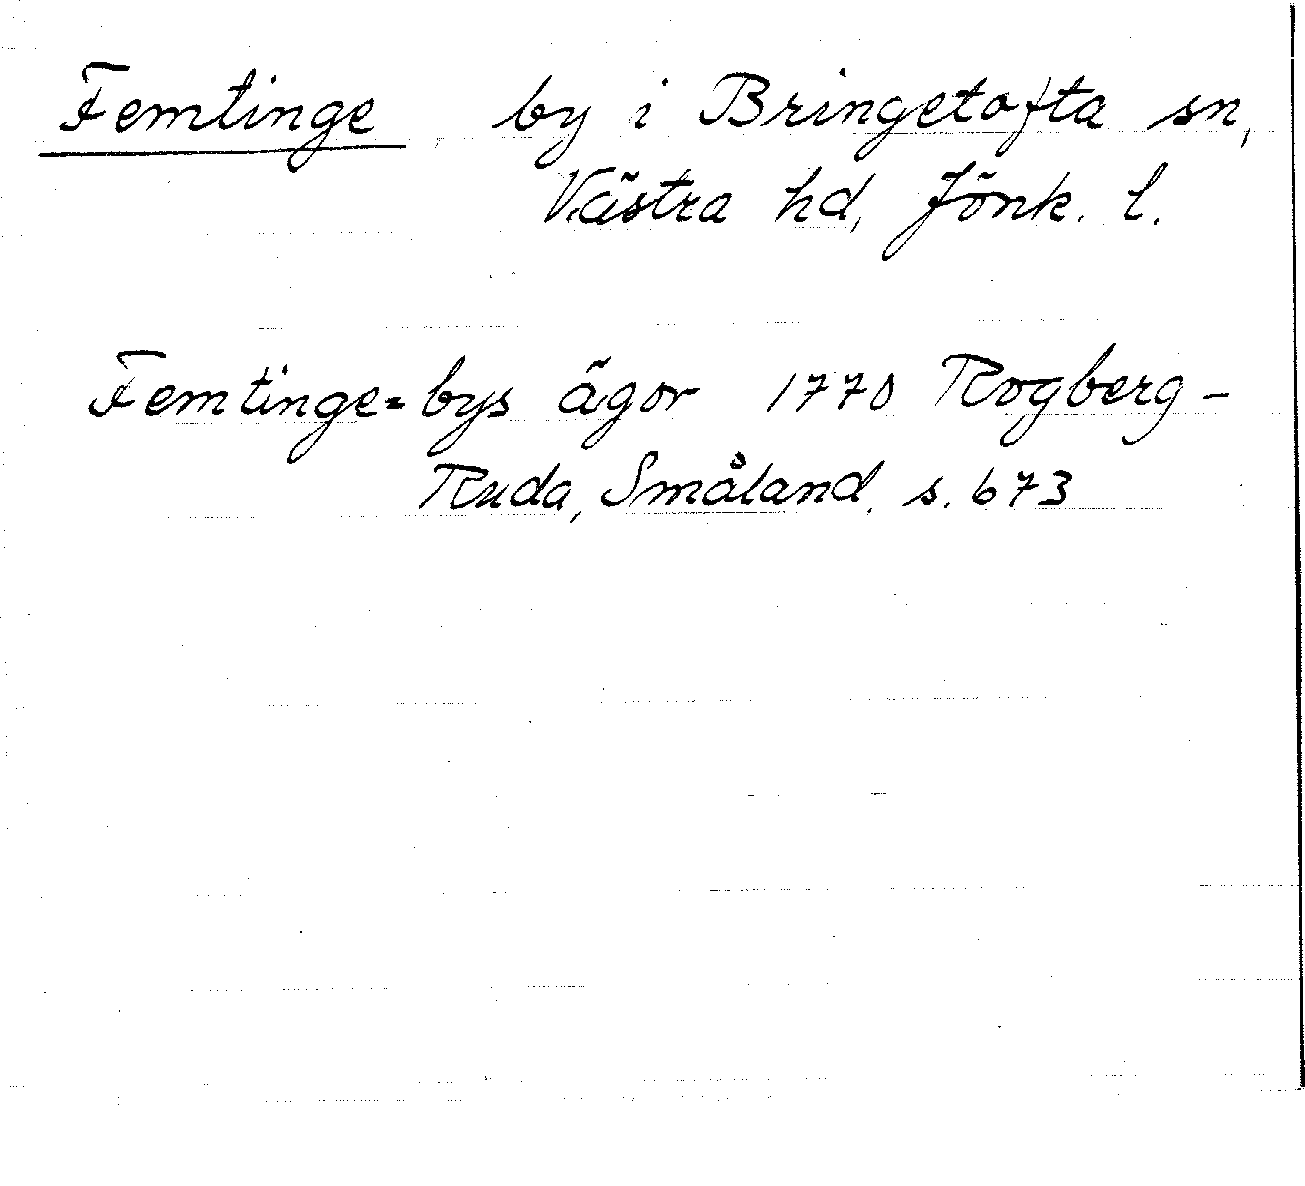 Femtinge, by i Bringetofta sn,
Västra hd, Jönk. l.
Femtinge=bys ägor 1770 Rogberg-
Ruda, Småland, s. 673